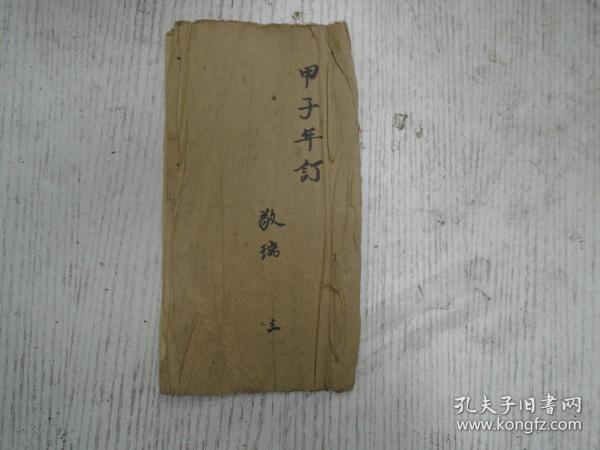 甲子年訂
敬瑞
孔夫子旧書网
www.kongfz.com